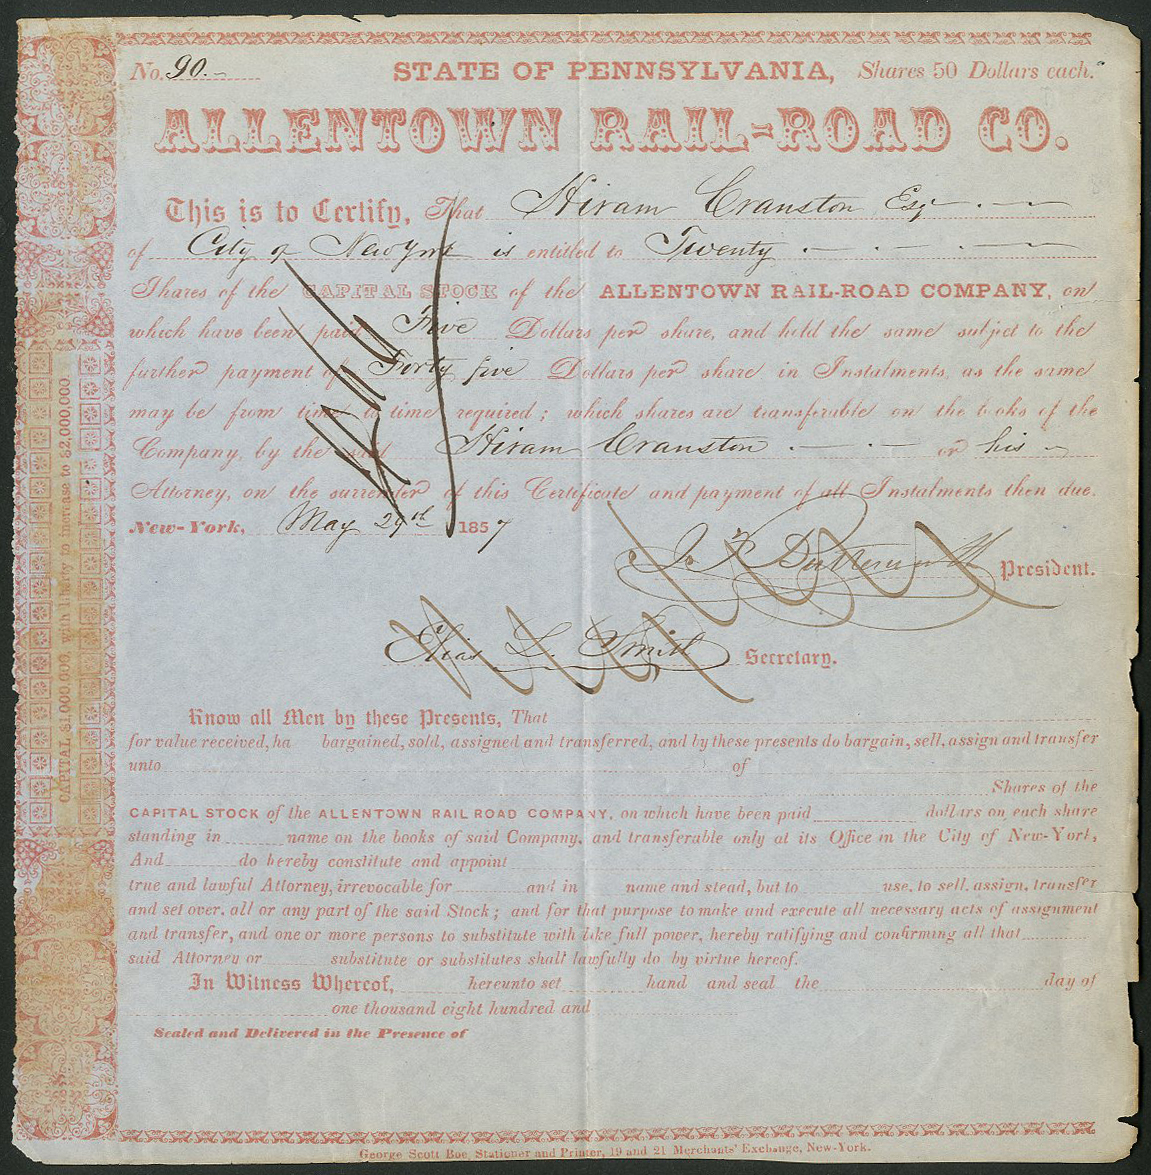 No. 90. STATE OF PENNSYLVANIA, Shares 50 Dollars each.
ALLENTOWN RAIL-ROAD CO.
This is to Certify, That Hiram Cranston Esq
of City of New York is entitled to Twenty
Shares of the CAPITAL STOCK of the ALLENTOWN RAIL-ROAD COMPANY, on
which have been paid Five Dollars per share, and hold the same subject to the
further payment of Forty five Dollars per share in Instalments, as the same
may be from time to time required; which shares are transferable on the books of the
Company, by the said Hiram Cranston or his
Attorney, on the surrender of this Certificate and payment of all Instalments then due.
New-York, May 29th 1857
Butterworth President.
Elias L. Smith Secretary.
Know all Men by these Presents, That
for value received, ha bargained, sold, assigned and transferred, and by these presents do bargain, sell, assign and transfer
unto of
Shares of the
CAPITAL STOCK of the ALLENTOWN RAIL ROAD COMPANY, on which have been paid dollars on each share
standing in name on the books of said Company, and transferable only at its Office in the City of New-York,
And do hereby constitute and appoint
true and lawful Attorney, irrevocable for and in name and stead, but to use, to sell, assign, transfer
and set over, all or any part of the said Stock; and for that purpose to make and execute all necessary acts of assignment
and transfer, and one or more persons to substitute with like full power, hereby ratifying and confirming all that
said Attorney or substitute or substitutes shall lawfully do by virtue hereof.
In Witness Whereof, hereunto set hand and seal the day of
one thousand eight hundred and
Sealed and Delivered in the Presence of
George Scott Roe, Stationer and Printer, 19 and 21 Merchants' Exchange, New-York.
CAPITAL $1,000,000, with liberty to increase to $2,000,000